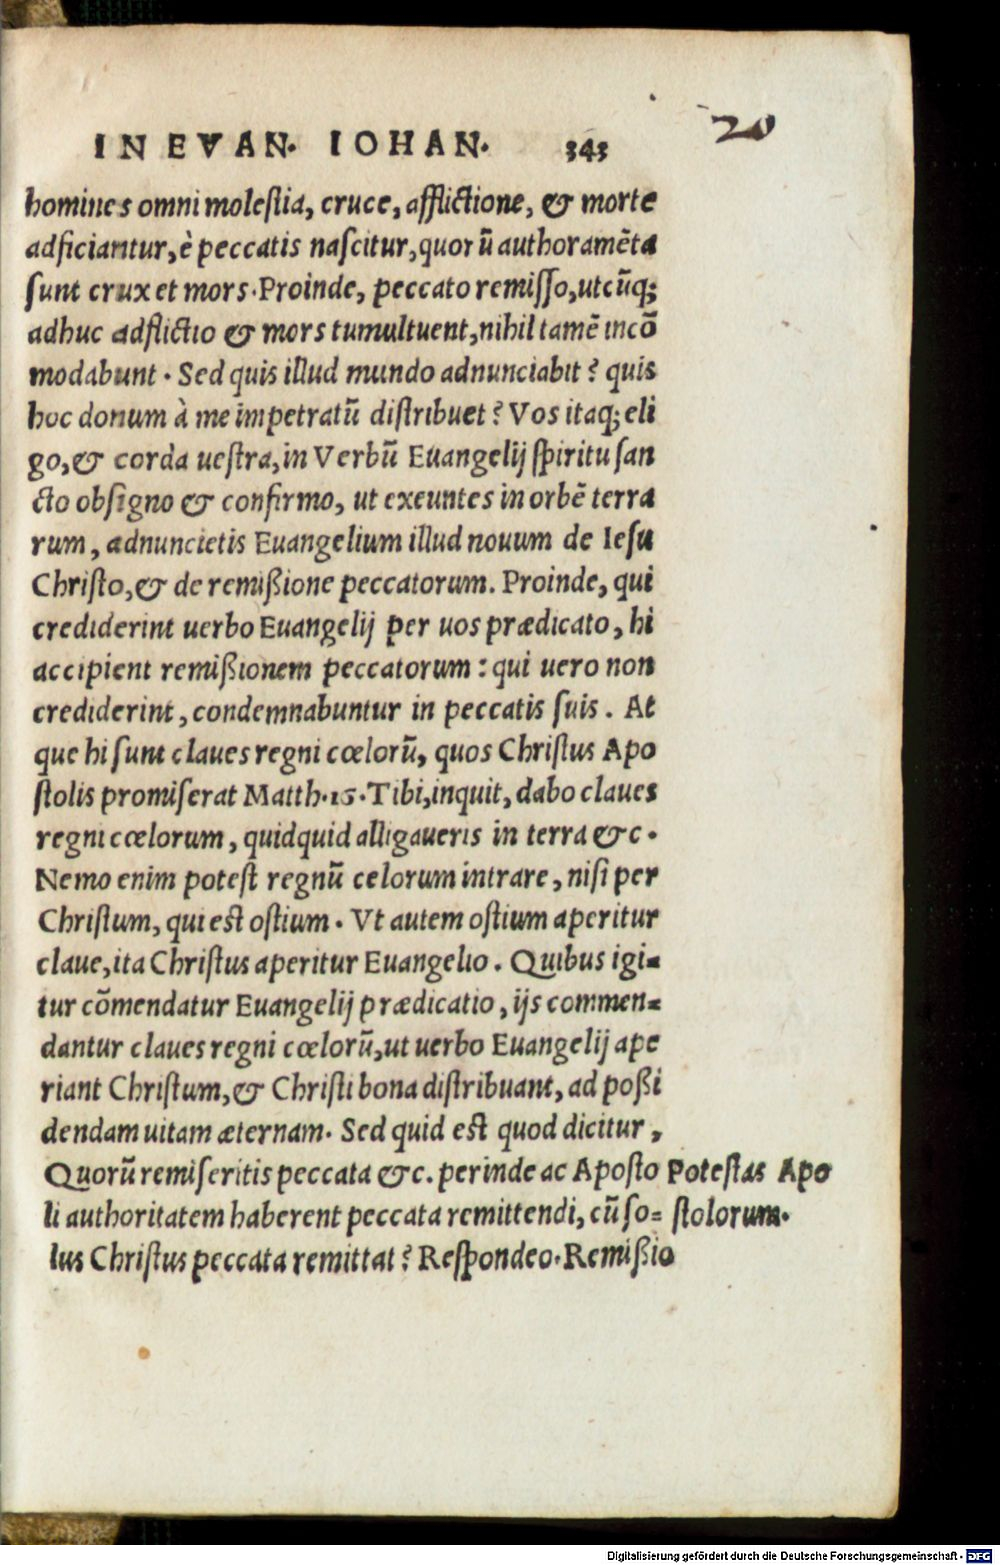 IN EVAN. IOHAN. 343
20
homines omni molestia, cruce, afflictione, & morte
adficiantur, è peccatis nascitur, quorū authoramēta
sunt crux et mors. Proinde, peccato remisso, utcūq;
adhuc adflictio & mors tumultuent, nihil tamē incō
modabunt. Sed quis illud mundo adnunciabit? quis
hoc donum à me impetratū distribuet? Vos itaq; eli
go, & corda uestra, in Verbū Euangelij spiritu san
cto obsigno & confirmo, ut exeuntes in orbē terra
rum, adnuncietis Euangelium illud nouum de Iesu
Christo, & de remißione peccatorum. Proinde, qui
crediderint uerbo Euangelij per uos prædicato, hi
accipient remißionem peccatorum: qui uero non
crediderint, condemnabuntur in peccatis suis. At
que hi sunt claues regni cœlorū, quos Christus Apo
stolis promiserat Matth. 16. Tibi, inquit, dabo claues
regni cœlorum, quidquid alligaueris in terra &c.
Nemo enim potest regnū celorum intrare, nisi per
Christum, qui est ostium. Vt autem ostium aperitur
claue, ita Christus aperitur Euangelio. Quibus igi-
tur cōmendatur Euangelij prædicatio, ijs commen-
dantur claues regni cœlorū, ut uerbo Euangelij ape
riant Christum, & Christi bona distribuant, ad poßi
dendam uitam æternam. Sed quid est quod dicitur,
Quorū remiseritis peccata &c. perinde ac Aposto
li authoritatem haberent peccata remittendi, cū so-
lus Christus peccata remittat? Respondeo. Remißio
Potestas Apo
stolorum.
Digitalisierung gefördert durch die Deutsche Forschungsgemeinschaft - DFG